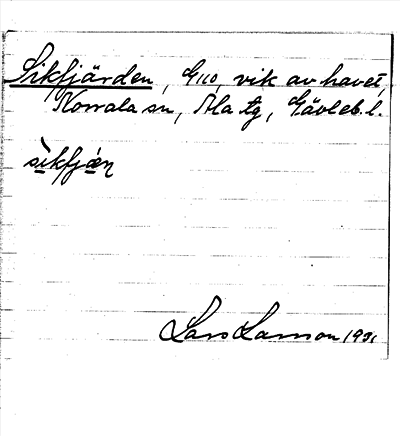 Sikfjärden, G 110, vik av havet,
Norrala sn, Ala tg, Gävleb. l.
sìkfjæ̀ṇ
Lars Larsson 1931